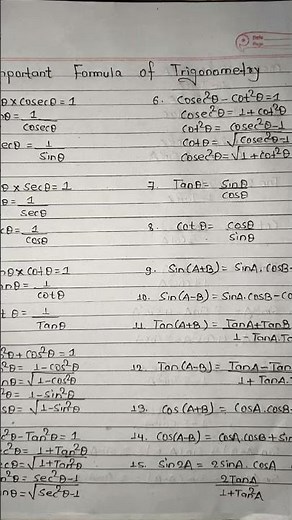 Date
Page
mportant Formula of Trigonometry
θ × cosecθ = 1
nθ = 1/cosecθ
ecθ = 1/Sinθ
θ × Secθ = 1
θ = 1/secθ
cθ = 1/cosθ
nθ × cotθ = 1
nθ = 1/cotθ
t θ = 1/Tanθ
²θ + cos²θ = 1
²θ = 1-cos²θ
nθ = √1-cos²θ
²θ = 1-sin²θ
sθ = √1-sin²θ
c²θ - Tan²θ = 1
c²θ = 1+Tan²θ
cθ = √1+Tan²θ
n²θ = sec²θ-1
nθ = √sec²θ-1
6. Cosec²θ - Cot²θ = 1
Cosec²θ = 1 + cot²θ
Cot²θ = Cosec²θ-1
Cotθ = √Cosec²θ-1
Cosec²θ = √1+cot²θ
7. Tanθ = Sinθ/cosθ
8. Cotθ = cosθ/sinθ
9. Sin(A+B) = SinA.cosB-
10. Sin(A-B) = SinA.cosB-Co
11. Tan(A+B) = TanA+TanB/1-TanA.T
12. Tan(A-B) = TanA-Tan/1+TanA.
13. Cos(A+B) = CosA.cosB-
14. Cos(A-B) = CosA.cosB+Sin
15. Sin2A = 2SinA.CosA
2TanA/1+Tan²A